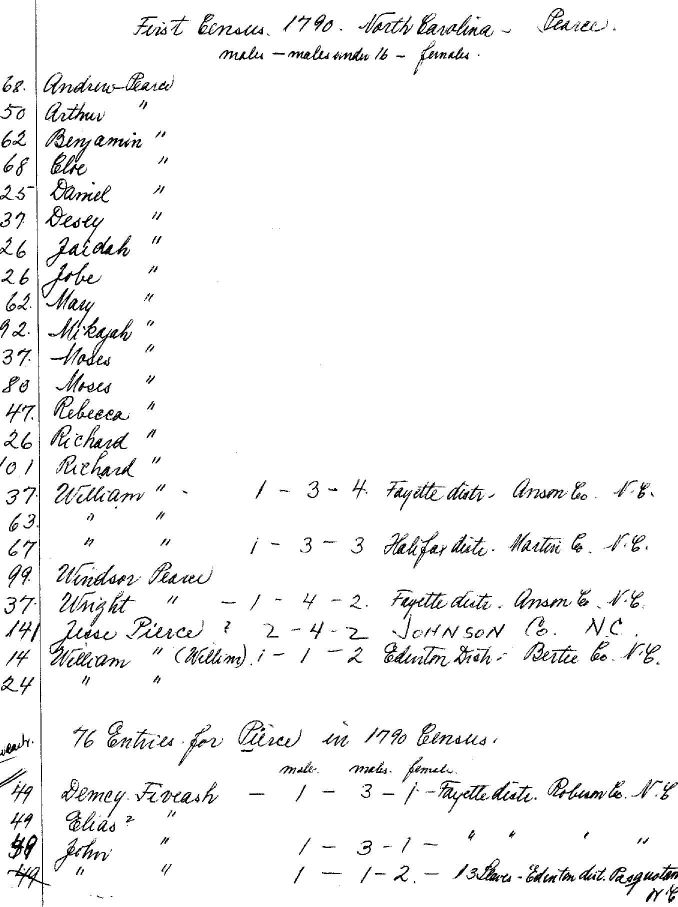 First Census. 1790. North Carolina - Pearce.
males - males under 16 - females.
68. Andrew Pearce
50 Arthur "
62 Benjamin "
68 Cloe "
25 Daniel "
37 Desey "
26 Zaidah "
26 Jobe "
62. Mary "
92. Mikajah "
37. Moses "
80 Moses "
47. Rebecca "
26 Richard "
101 Richard "
37 William " - 1 - 3 - 4. Fayette distr. Anson Co. N.C.
63. " "
67 " " 1 - 3 - 3 Halifax distr. Martin Co. N.C.
99. Windsor Pearce
37 Wright " - 1 - 4 - 2. Fayette distr. Anson Co. N.C.
141 Jesse Pierce ? 2 - 4 - 2 JOHNSON Co. N.C.
14 William " (Willim). 1 - 1 - 2 Edenton Distr. Bertie Co. N.C.
24 " "
76 Entries for Pierce in 1790 Census.
male. males. female.
49 Demcy Fiveash - 1 - 3 - 1 - Fayette distr. Robeson Co. N.C
49 Elias ? "
49 John " 1 - 3 - 1 - " " " "
49 " " 1 - 1 - 2. - 13 Slaves - Edenton dist. Pasquotan
N.C